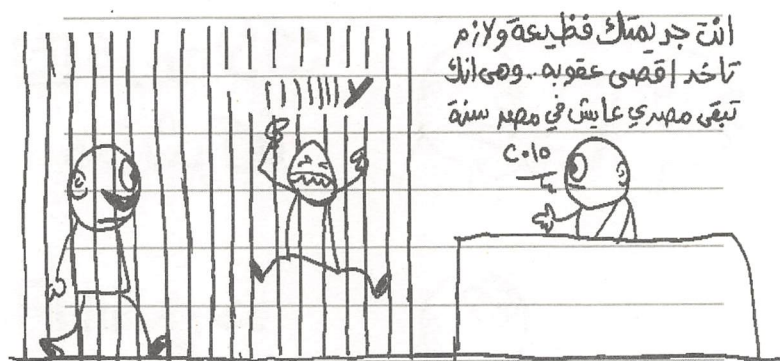 انت جريمتك فظيعة ولازم
تاخد اقصى عقوبه .. وهى انك
تبقى مصري عايش في مصر سنة
٢٠١٥
لاااااااا